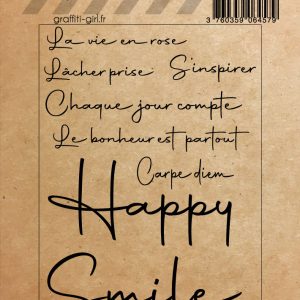 graffiti-girl.fr
3 760359 064579
La vie en rose
Lâcher prise S'inspirer
Chaque jour compte
Le bonheur est partout
Carpe diem
Happy
Smile